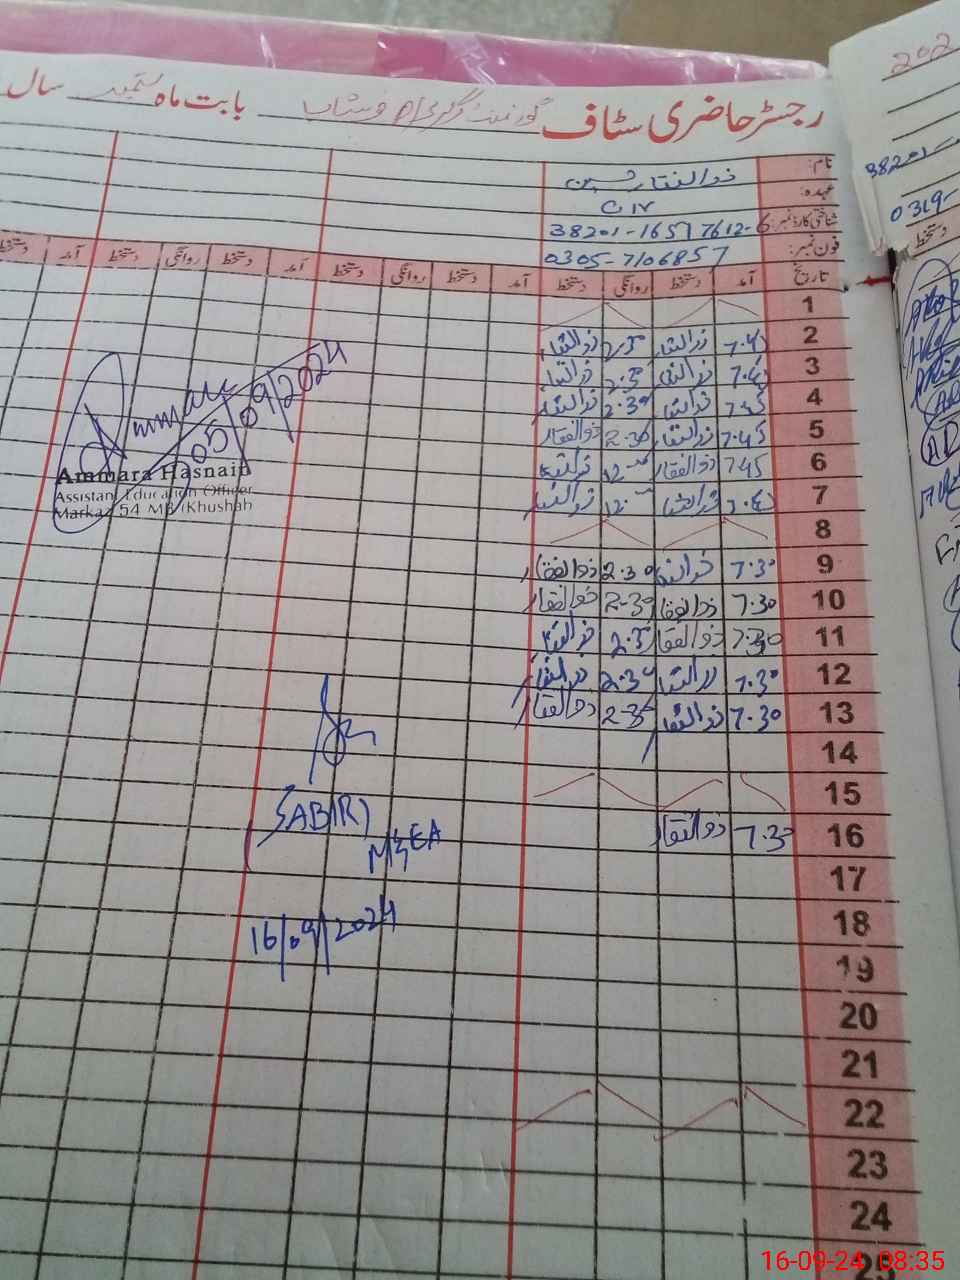 رجسٹر حاضری سٹاف گورنمنٹ گرلز بابت ماہ ستمبر سال
نام: ذوالفقار حسین
عہدہ: C IV
شناختی کارڈ نمبر: 38201-16597612-6
فون نمبر: 0305-7106857
تاریخ آمد دستخط روانگی دستخط آمد دستخط روانگی دستخط آمد دستخط روانگی دستخط آمد
1
2 7.45 ذوالفقار 2.30 ذوالفقار
3 7.45 ذوالفقار 2.30 ذوالفقار
4 7.45 ذوالفقار 2.30 ذوالفقار
5 7.45 ذوالفقار 2.30 ذوالفقار
6 7.45 ذوالفقار 12.00 ذوالفقار
7 7.45 ذوالفقار 12.00 ذوالفقار
8
9 7.30 ذوالفقار 2.30 ذوالفقار
10 7.30 ذوالفقار 2-30 ذوالفقار
11 7.30 ذوالفقار 2.30 ذوالفقار
12 7.30 ذوالفقار 2.30 ذوالفقار
13 7.30 ذوالفقار 2-30 ذوالفقار
14
15
16 7.30 ذوالفقار
17
18
19
20
21
22
23
24
25
Ammara
05/09/2024
Ammara Hasnain
Assistant Education Officer
Markaz 54 MB (Khushab
(SABIR)
M&EA
16/09/2024
202
38201-
0319-
دستخط
16-09-24 08:35